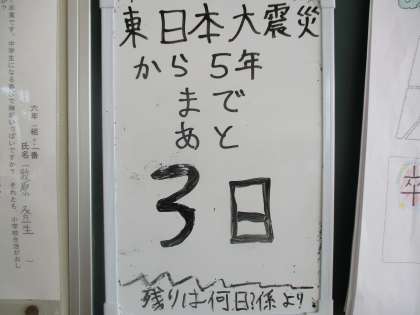 東日本大震災
から5年
まで
あと
3日
残りは何日?係より
六年一組一番
氏名
卒